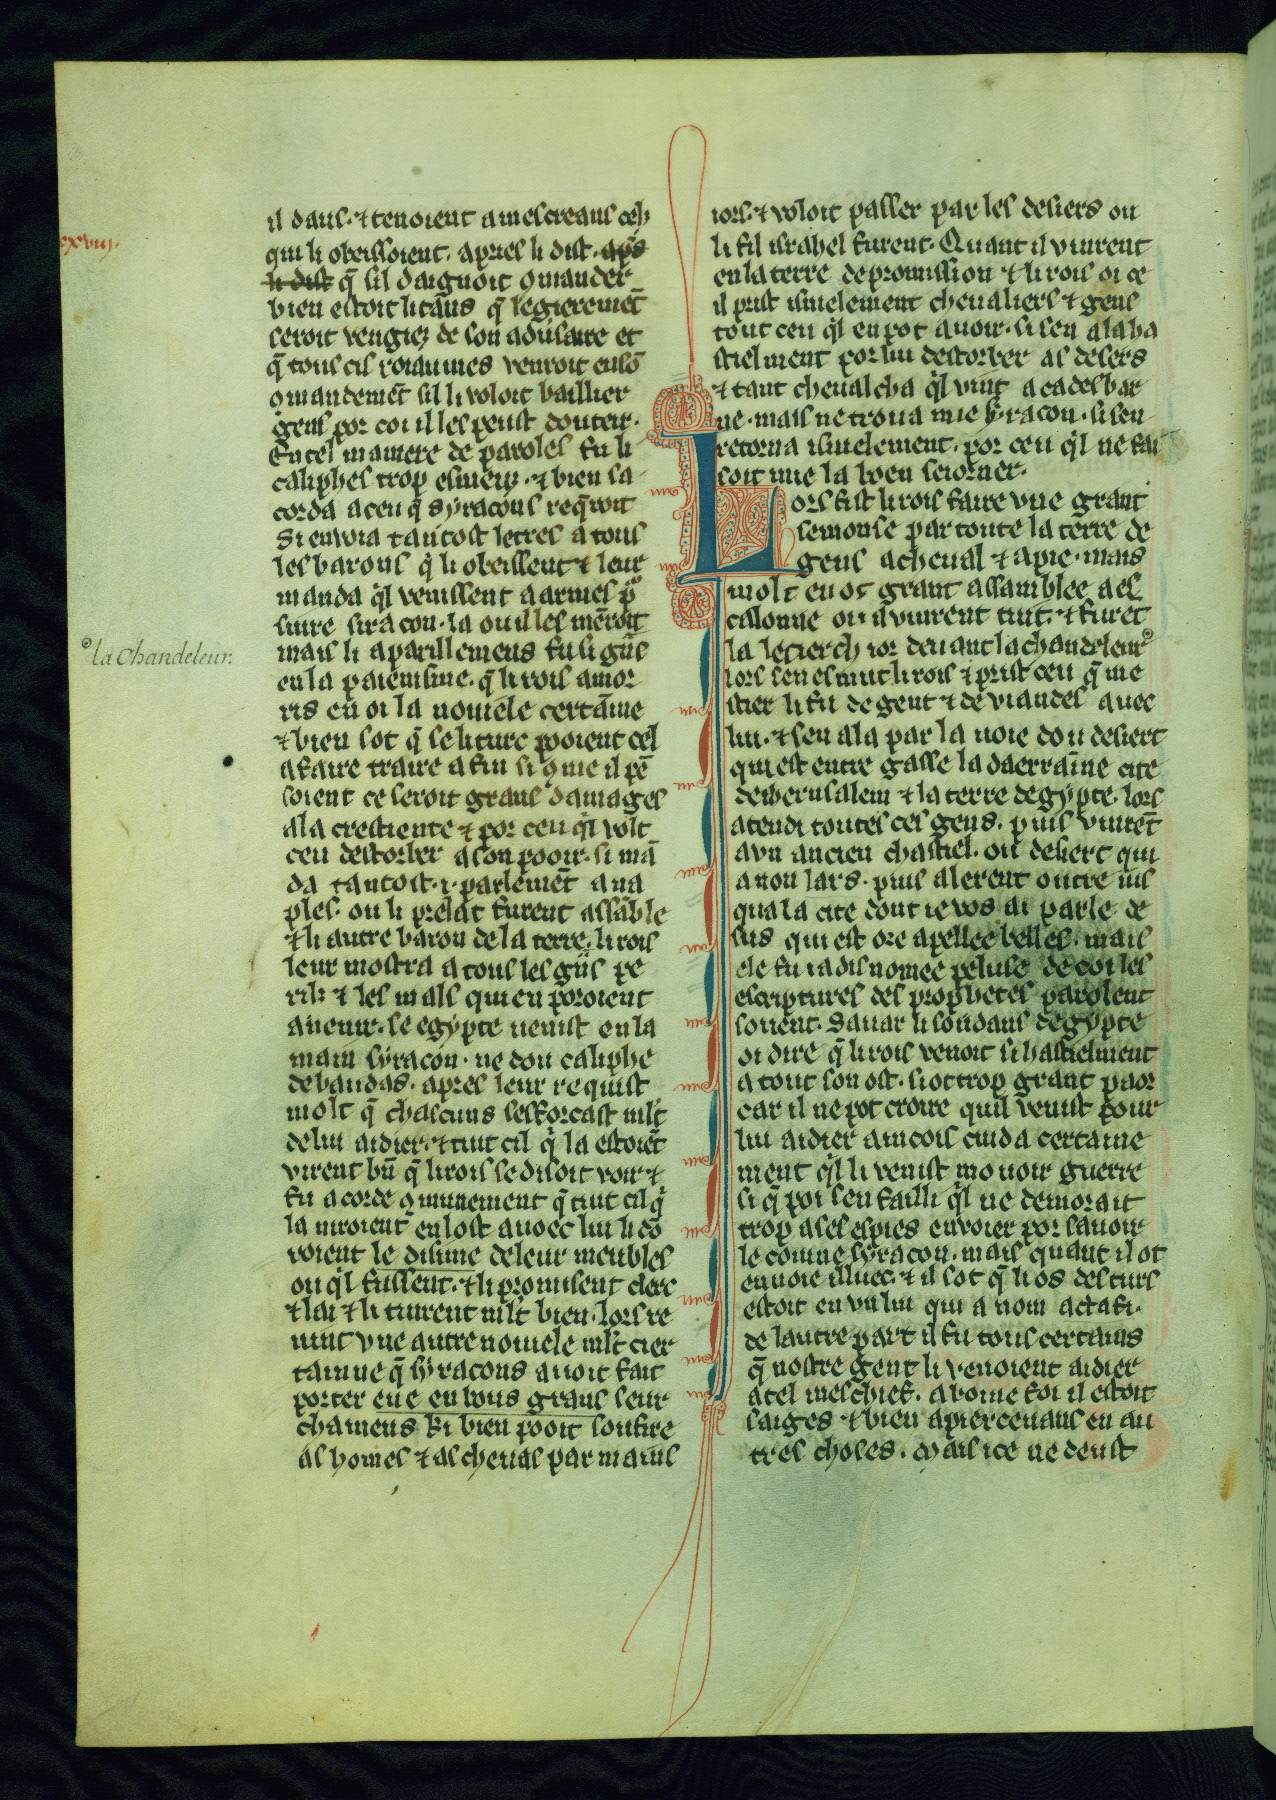 il daus. ⁊ tenoient a mescreans ceh
qui li obeissoient. apries li dist. aps
li dist q̄ sil daignoit ꝯmander
bien estoit li tāns q̄ legieremēt
seroit vengiez de son adūsaire et
q̄ tous cis roiaumes venroit en sō
ꝯmandemēt sil li voloit baillier
gens por coi il les peust douter.
En tel maniere de paroles fu li
caliphes trop esmeuz. ⁊ bien sa
corda a ceu q̄ syracons req̄roit
Si envoia tantost letres a tous
les barons q̄ li obeissent ⁊ leur
manda ql venissent a armes p̄
suire siracon. la ou il les mēroit
mais li aparillemens fu si gūs
en la paienisme. q̄ li rois amor
ris en oi la novele certāine
⁊ bien sot q̄ se li turc pooient cel
afaire traire a fin si ꝯme il pē
soient ce seroit grans damages
a la crestiente ⁊ por ceu ql volt
ceu destorber a son pooir. si mā
da tantost .i. parlemēt a na
ples. ou li prelat furent assāble
⁊ li autre baron de la terre. li rois
leur mostra a tous les gūs pe
rilz ⁊ les mals qui en poroient
avenir. se egypte venist en la
main syracon. ne dou caliphe
de baudas. apres leur requist
molt q̄ chascuns sesforcast mlt
de lui aidier. ⁊ tuit cil q̄ la estoiēt
virent bn̄ q̄ li rois se disoit voir ⁊
fu acorde ꝯmunement q̄ tuit cil q̄
la niroient en lost avoec lui li dō
roient le disime de leur meubles
ou ql fussent. ⁊ li promisent clerc
⁊ lai ⁊ li turent mlt bien. lors re
vint vne autre novele mlt cier
tainne q̄ syracons avoit fait
porter eue en bous grans seur
chamens ki bien pooit soufire
as homes ⁊ as chevas par maius
iors. ⁊ voloit passer par les desiers ou
li fil israhel furent. Quant il vinrent
en la terre de promission ⁊ li rois oi ce
il prist isnelement chevaliers ⁊ gens
tout ceu ql en pot avoir. si sen ala ha
stielment por lui destorber as desers
⁊ tant chevalcha ql vint a cadesbar
ne. mais ne trova mie syracon. si sen
retorna isnelement. por ceu ql ne fai
soit mie la boen seiorner.
Lors fist li rois faire vne grant
semonse par toute la terre de
gens a cheual ⁊ a pie. mais
molt en ot grant assamblee a es
calonne ou il vinrent tuit. ⁊ furēt
la le tierch ior devant la chandeleur
lors sen esmut li rois ⁊ prist ceu q̄ me
stier li fu de gent ⁊ de viandes avec
lui. ⁊ sen ala par la voie dou desiert
qui est entre gasse la daerrāine cite
de iherusalem ⁊ la terre degypte. lors
atendi toutes ces gens. puis vinrēt
a vn ancien chastiel. ou desiert qui
a non lars. puis alerent outre ius
qua la cite dont ie vos ai parle de
sus qui est ore apellee belbes. mais
ele fu iadis nomee peluse de coi les
escriptures des prophetes parolent
sovent. Savar li soudans degypte
oi dire q̄ li rois venoit si hastielment
a tout son ost. si ot trop grant paor
car il ne pot croire quil venist pour
lui aidier aincois cuida certaine
ment ql li venist movoir guerre
si q̄ poi sen failli ql ne demorait
trop a ses espies envoier por savoir
le comne syracon. mais quant il ot
envoie illuec. ⁊ il sot q̄ li os des turs
estoit en vn liu qui a nom actafi.
de lautre part il fu tous certains
q̄ nostre gent li venoient aidier
a tel meschief. a bone foi il estoit
saiges ⁊ bien apiercevans en au
tres choses. Mais ice ne deust
la Chandeleur.